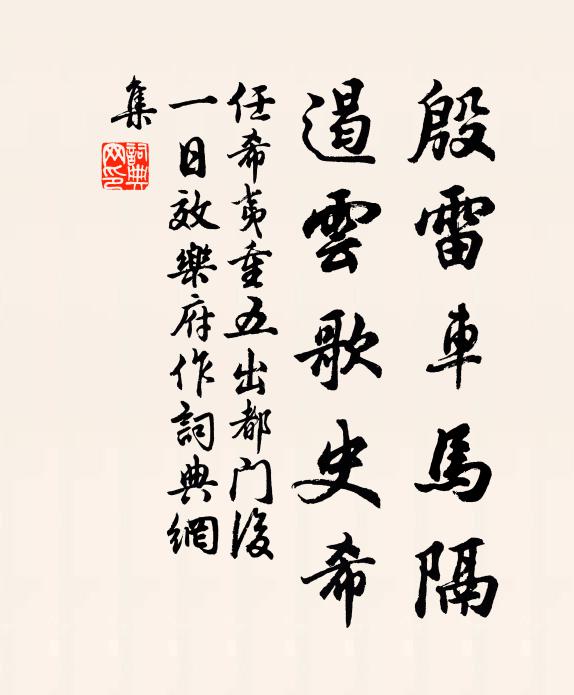 殷雷車馬隔
遏雲歌吏希
任希夷重五出都门後
一日效樂府作詞典網
集
詞典網印